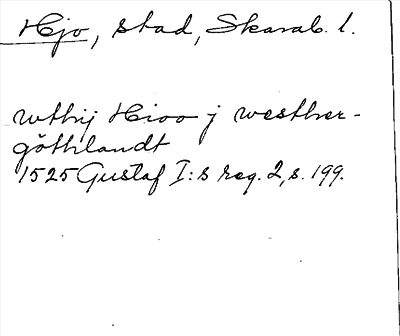 Hjo, stad, Skarab. l.
wthij Hioo j westher-
göthlandt
1525 Gustaf I:s reg. 2, s. 199.